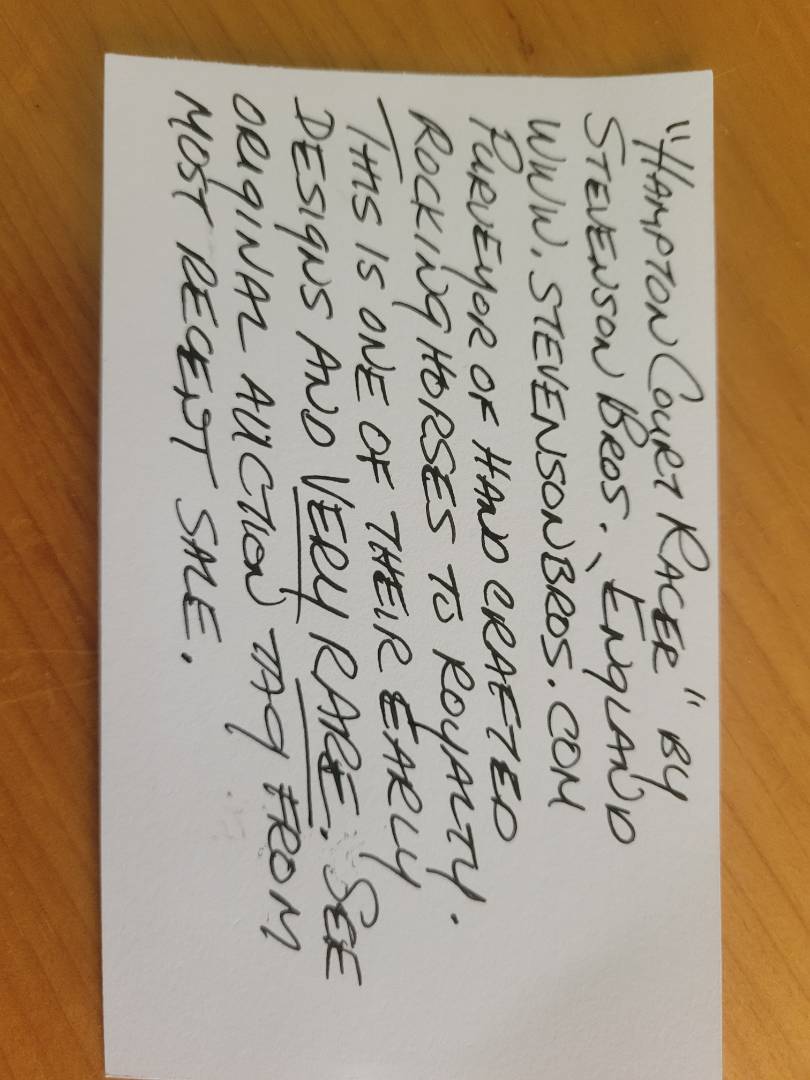 "HAMPTON COURT RACER" BY
STEVENSON BROS., ENGLAND
WWW.STEVENSONBROS.COM
PURVEYOR OF HAND CRAFTED
ROCKING HORSES TO ROYALTY.
THIS IS ONE OF THEIR EARLY
DESIGNS AND VERY RARE. SEE
ORIGINAL AUCTION TAG FROM
MOST RECENT SALE.